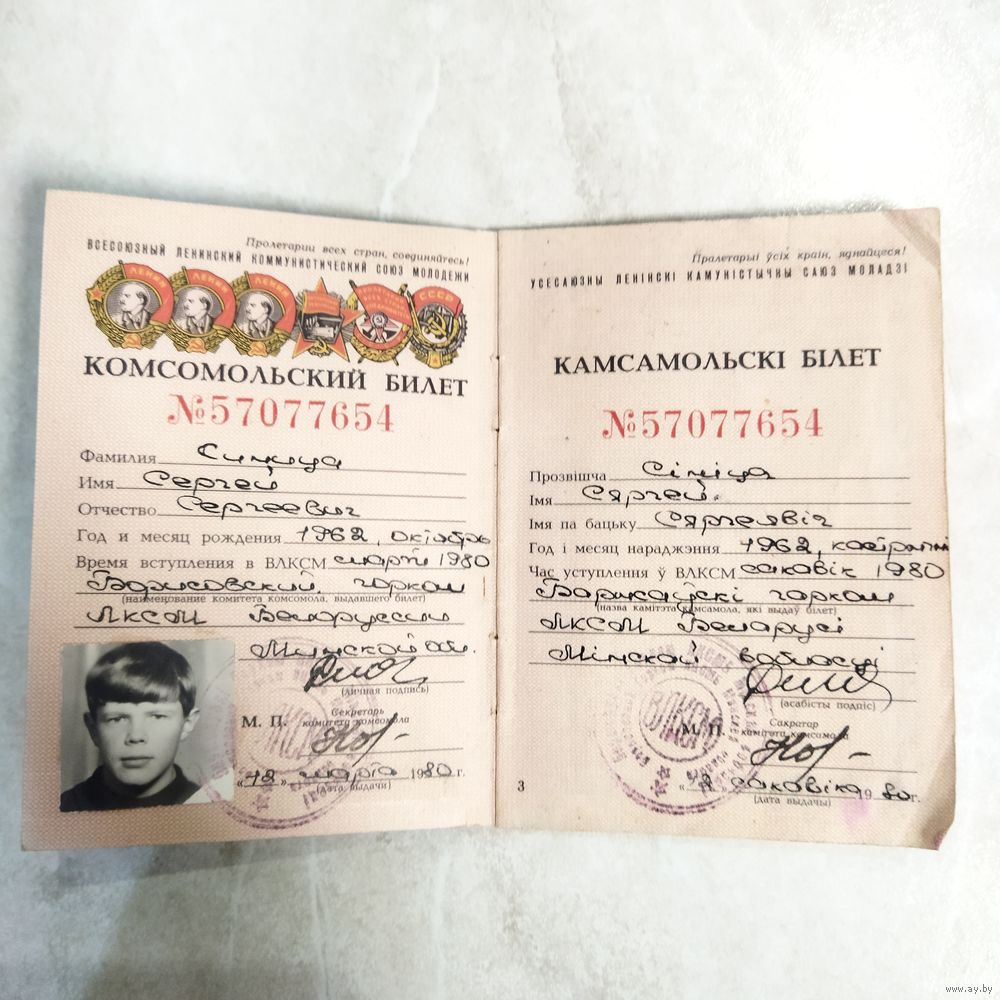 Пролетарии всех стран, соединяйтесь!
ВСЕСОЮЗНЫЙ ЛЕНИНСКИЙ КОММУНИСТИЧЕСКИЙ СОЮЗ МОЛОДЕЖИ
ЛЕНИН ЛЕНИН ЛЕНИН СССР
КОМСОМОЛЬСКИЙ БИЛЕТ
№57077654
Фамилия Синица
Имя Сергей
Отчество Сергеевич
Год и месяц рождения 1962, октябрь
Время вступления в ВЛКСМ март 1980
Борисовский горком
(наименование комитета комсомола, выдавшего билет)
ЛКСМ Белоруссии
Минской обл.
(личная подпись)
Секретарь
М. П. комитета комсомола
"12" марта 1980 г.
(дата выдачи)
Пралетарыі ўсіх краін, яднайцеся!
УСЕСАЮЗНЫ ЛЕНІНСКІ КАМУНІСТЫЧНЫ САЮЗ МОЛАДЗІ
КАМСАМОЛЬСКІ БІЛЕТ
№57077654
Прозвішча Сініца
Імя Сяргей
Імя па бацьку Сяргеявіч
Год і месяц нараджэння 1962, кастрычнік
Час уступлення ў ВЛКСМ сакавік 1980
Барысаўскі гарком
(назва камітэта камсамола, які выдаў білет)
ЛКСМ Беларусі
Мінскай вобласці
(асабісты подпіс)
Сакратар
М. П. камітэта камсамола
"12" сакавіка 1980 г.
(дата выдачы)
3
ВЛКСМ
www.ay.by